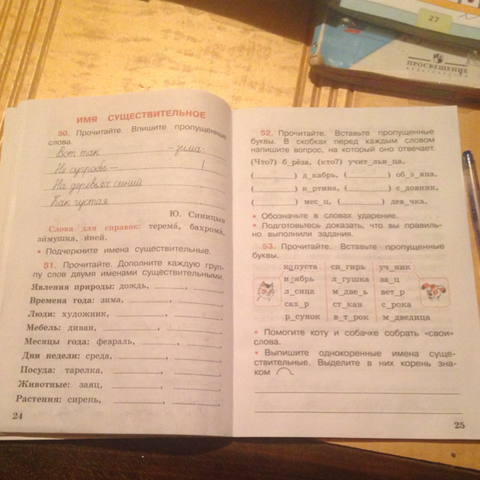 27
ПРОСВЕЩЕНИЕ
ИМЯ СУЩЕСТВИТЕЛЬНОЕ
50. Прочитайте. Впишите пропущенные
слова.
Вот так ________ -зима
Не сугробы — ________ !
На деревьях синий ________
Как густая ________
Ю. Синицын
Слова для справок: терема, бахрома,
зимушка, иней.
• Подчеркните имена существительные.
51. Прочитайте. Дополните каждую груп-
пу слов двумя именами существительными.
Явления природы: дождь, ________, ________
Времена года: зима, ________, ________
Люди: художник, ________, ________
Мебель: диван, ________, ________
Месяцы года: февраль, ________, ________
Дни недели: среда, ________, ________
Посуда: тарелка, ________, ________
Животные: заяц, ________, ________
Растения: сирень, ________, ________
24
52. Прочитайте. Вставьте пропущенные
буквы. В скобках перед каждым словом
напишите вопрос, на который оно отвечает.
(Что?) б_рёза, (кто?) учит_льн_ца,
(________) д_кабрь, (________) об_з_яна,
(________) к_ртина, (________) с_довник,
(________) мес_ц, (________) дев_чка.
• Обозначьте в словах ударение.
• Подготовьтесь доказать, что вы правиль-
но выполнили задания.
53. Прочитайте. Вставьте пропущенные
буквы.
капуста сн_гирь уч_ник
н_ябрь л_гушка за_ц
л_сица м_две_ь вет_р
сах_р ст_кан с_рока
р_сунок в_т_рок м_дведица
• Помогите коту и собачке собрать «свои»
слова.
• Выпишите однокоренные имена суще-
ствительные. Выделите в них корень зна-
ком
25